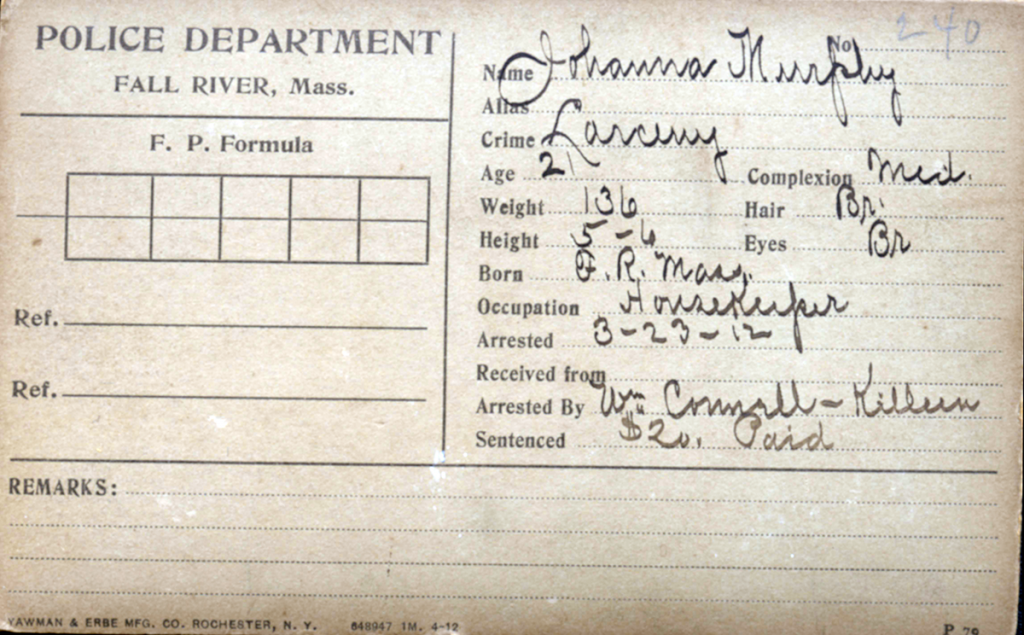 POLICE DEPARTMENT
FALL RIVER, Mass.
F. P. Formula
Ref.
Ref.
No. 240
Name Johanna Murphy
Alias
Crime Larceny
Age 21 Complexion Med.
Weight 136 Hair Br.
Height 5-6 Eyes Br
Born F. R. Mass.
Occupation Housekeeper
Arrested 3-23-12
Received from
Arrested By Wm Connell - Killeen
Sentenced $20. Paid
REMARKS:
YAWMAN & ERBE MFG. CO. ROCHESTER, N. Y. 648947 1M. 4-12 P 79